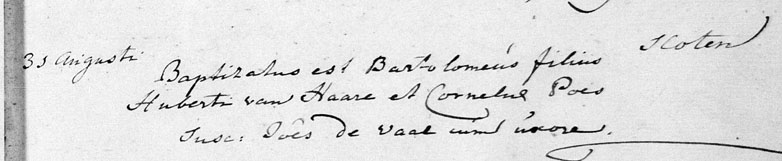 31 Augusti Baptizatus est Bartolomeús filius Scoten
Huberti van Haare et Corneliæ Poes
Susc: Joês de Vaal cum úxore.